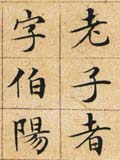 老子者
字伯陽